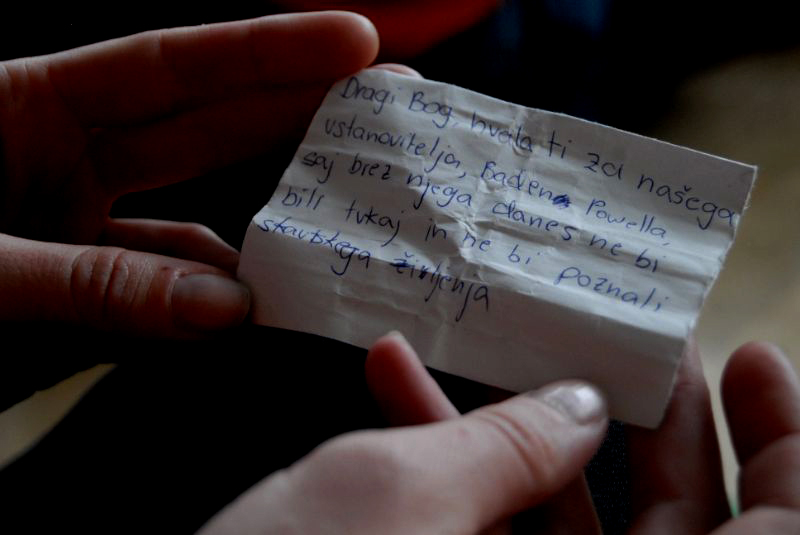 Dragi Bog, hvala ti za našega
ustanovitelja, Baden Powella,
saj brez njega danes ne bi
bili tukaj in ne bi poznali
skavtskega življenja